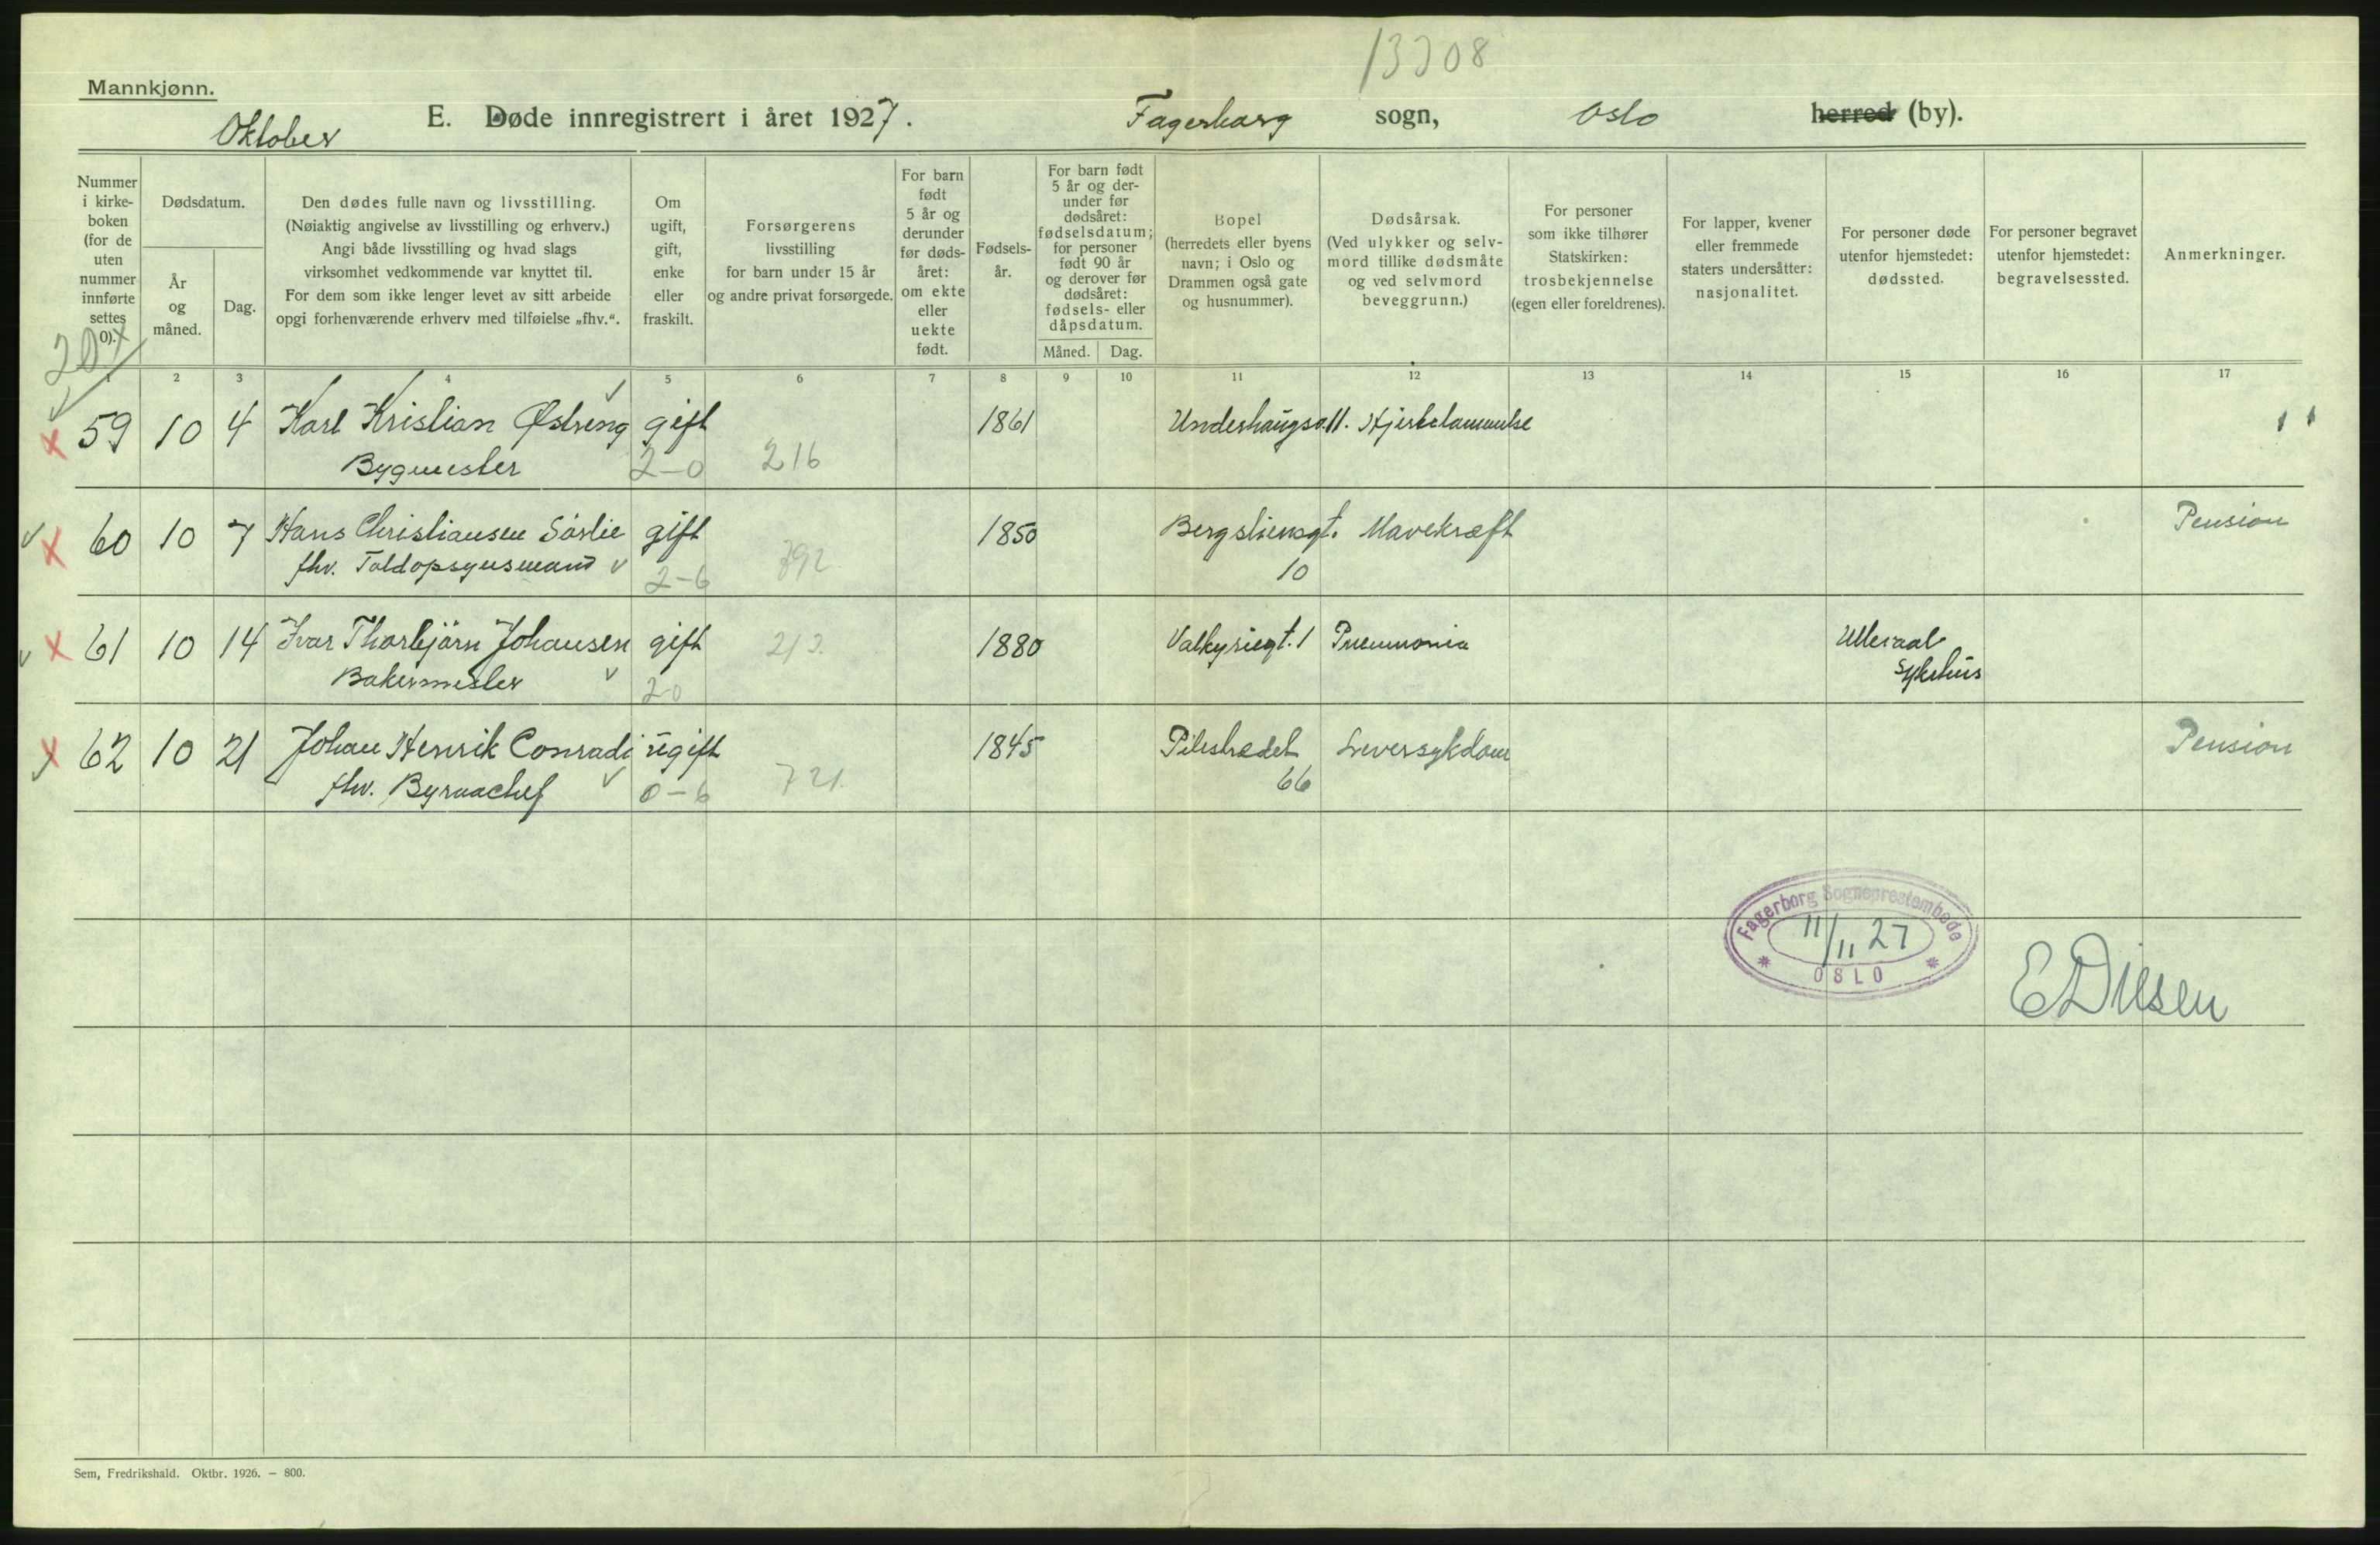 13308
Mannkjønn.
Oktober
E. Døde innregistrert i året 1927.
Fagerborg sogn, Oslo herred (by).
Nummer i kirkeboken (for de uten nummer innførte settes 0).
Dødsdatum.
År og måned.
Dag.
Den dødes fulle navn og livsstilling.
(Nøiaktig angivelse av livsstilling og erhverv.)
Angi både livsstilling og hvad slags
virksomhet vedkommende var knyttet til.
For dem som ikke lenger levet av sitt arbeide
opgi forhenværende erhverv med tilføielse „fhv.“.
Om ugift, gift, enke eller fraskilt.
Forsørgerens
livsstilling
for barn under 15 år
og andre privat forsørgede.
For barn født 5 år og derunder før dødsåret: om ekte eller uekte født.
Fødselsår.
For barn født 5 år og derunder før dødsåret: fødselsdatum; for personer født 90 år og derover før dødsåret: fødsels- eller dåpsdatum.
Måned.
Dag.
Bopel
(herredets eller byens
navn; i Oslo og
Drammen også gate
og husnummer).
Dødsårsak.
(Ved ulykker og selvmord tillike dødsmåte
og ved selvmord
beveggrunn.)
For personer
som ikke tilhører
Statskirken:
trosbekjennelse
(egen eller foreldrenes).
For lapper, kvener
eller fremmede
staters undersåtter:
nasjonalitet.
For personer døde
utenfor hjemstedet:
dødssted.
For personer begravet
utenfor hjemstedet:
begravelsessted.
Anmerkninger.
1 2 3 4 5 6 7 8 9 10 11 12 13 14 15 16 17
59 10 4 Karl Kristian Østreng gift 1861 Underhaugsv. 11. Hjertelammelse
Bygmester 2-0 216
60 10 7 Hans Christiansen Sörlie gift 1850 Bergsliensgt. Mavekræft Pension
fhv. Toldopsynsmand 2-6 792 10
61 10 14 Ivar Thorbjörn Johansen gift 213. 1880 Valkyriegt. 1 Pneumonia Ullevaal
Bakermester 2-0 Sykehus
62 10 21 Johan Henrik Conradi ugift 1845 Pilestrædet Leversykdom Pension
fhv. Byraachef 0-6 721. 66
Fagerborg Sogneprestembede
11/11 27
OSLO
Sem, Fredrikshald. Oktbr. 1926. — 800.